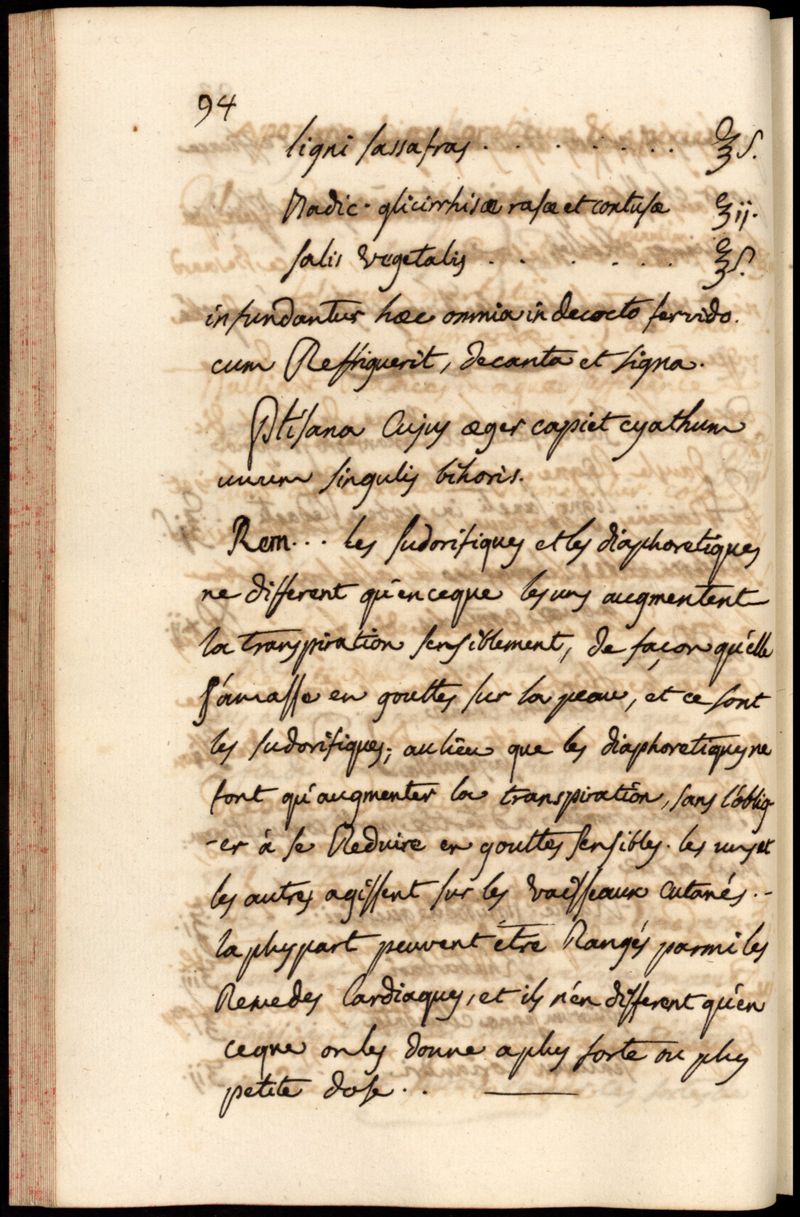 94
ligni sassafras . . . . . . . . ℥ s.
Radic. glicirrhisæ rasæ et contusæ ℥ ij.
salis vegetalis . . . . . . ℥ s.
infundantur hæc omnia in decocto fervido.
cum Reffriguerit, decanta et signa.
Ptisana Cujus æger capiet cyathum
unum singulis bihoris.
Rem... les sudorifiques et les diaphoretiques
ne different qu'en ceque les uns augmentent
la transpiration sensiblement, de façon qu'elle
s'amasse en gouttes sur la peau, et ce sont
les sudorifiques; aulieu que les diaphoretiques ne
font qu'augmenter la transpiration, sans l'oblig-
-er à se Reduire en gouttes sensibles. les uns et
les autres agissent sur les vaisseaux cutanés. -
la pluspart peuvent être Rangés parmi les
Remedes Cardiaques, et ils n'en different qu'en
ceque on les donne a plus forte ou plus
petite dose . .